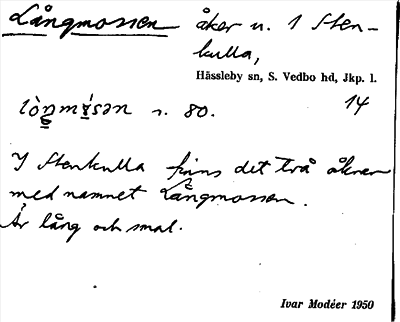 Långmossen åker n. 1 Sten-
kulla,
Hässleby sn, S. Vedbo hd, Jkp. l.
14
s. 80.
I Stenkulla finns det två åkrar
med namnet Långmossen.
Är lång och smal.
Ivar Modéer 1950